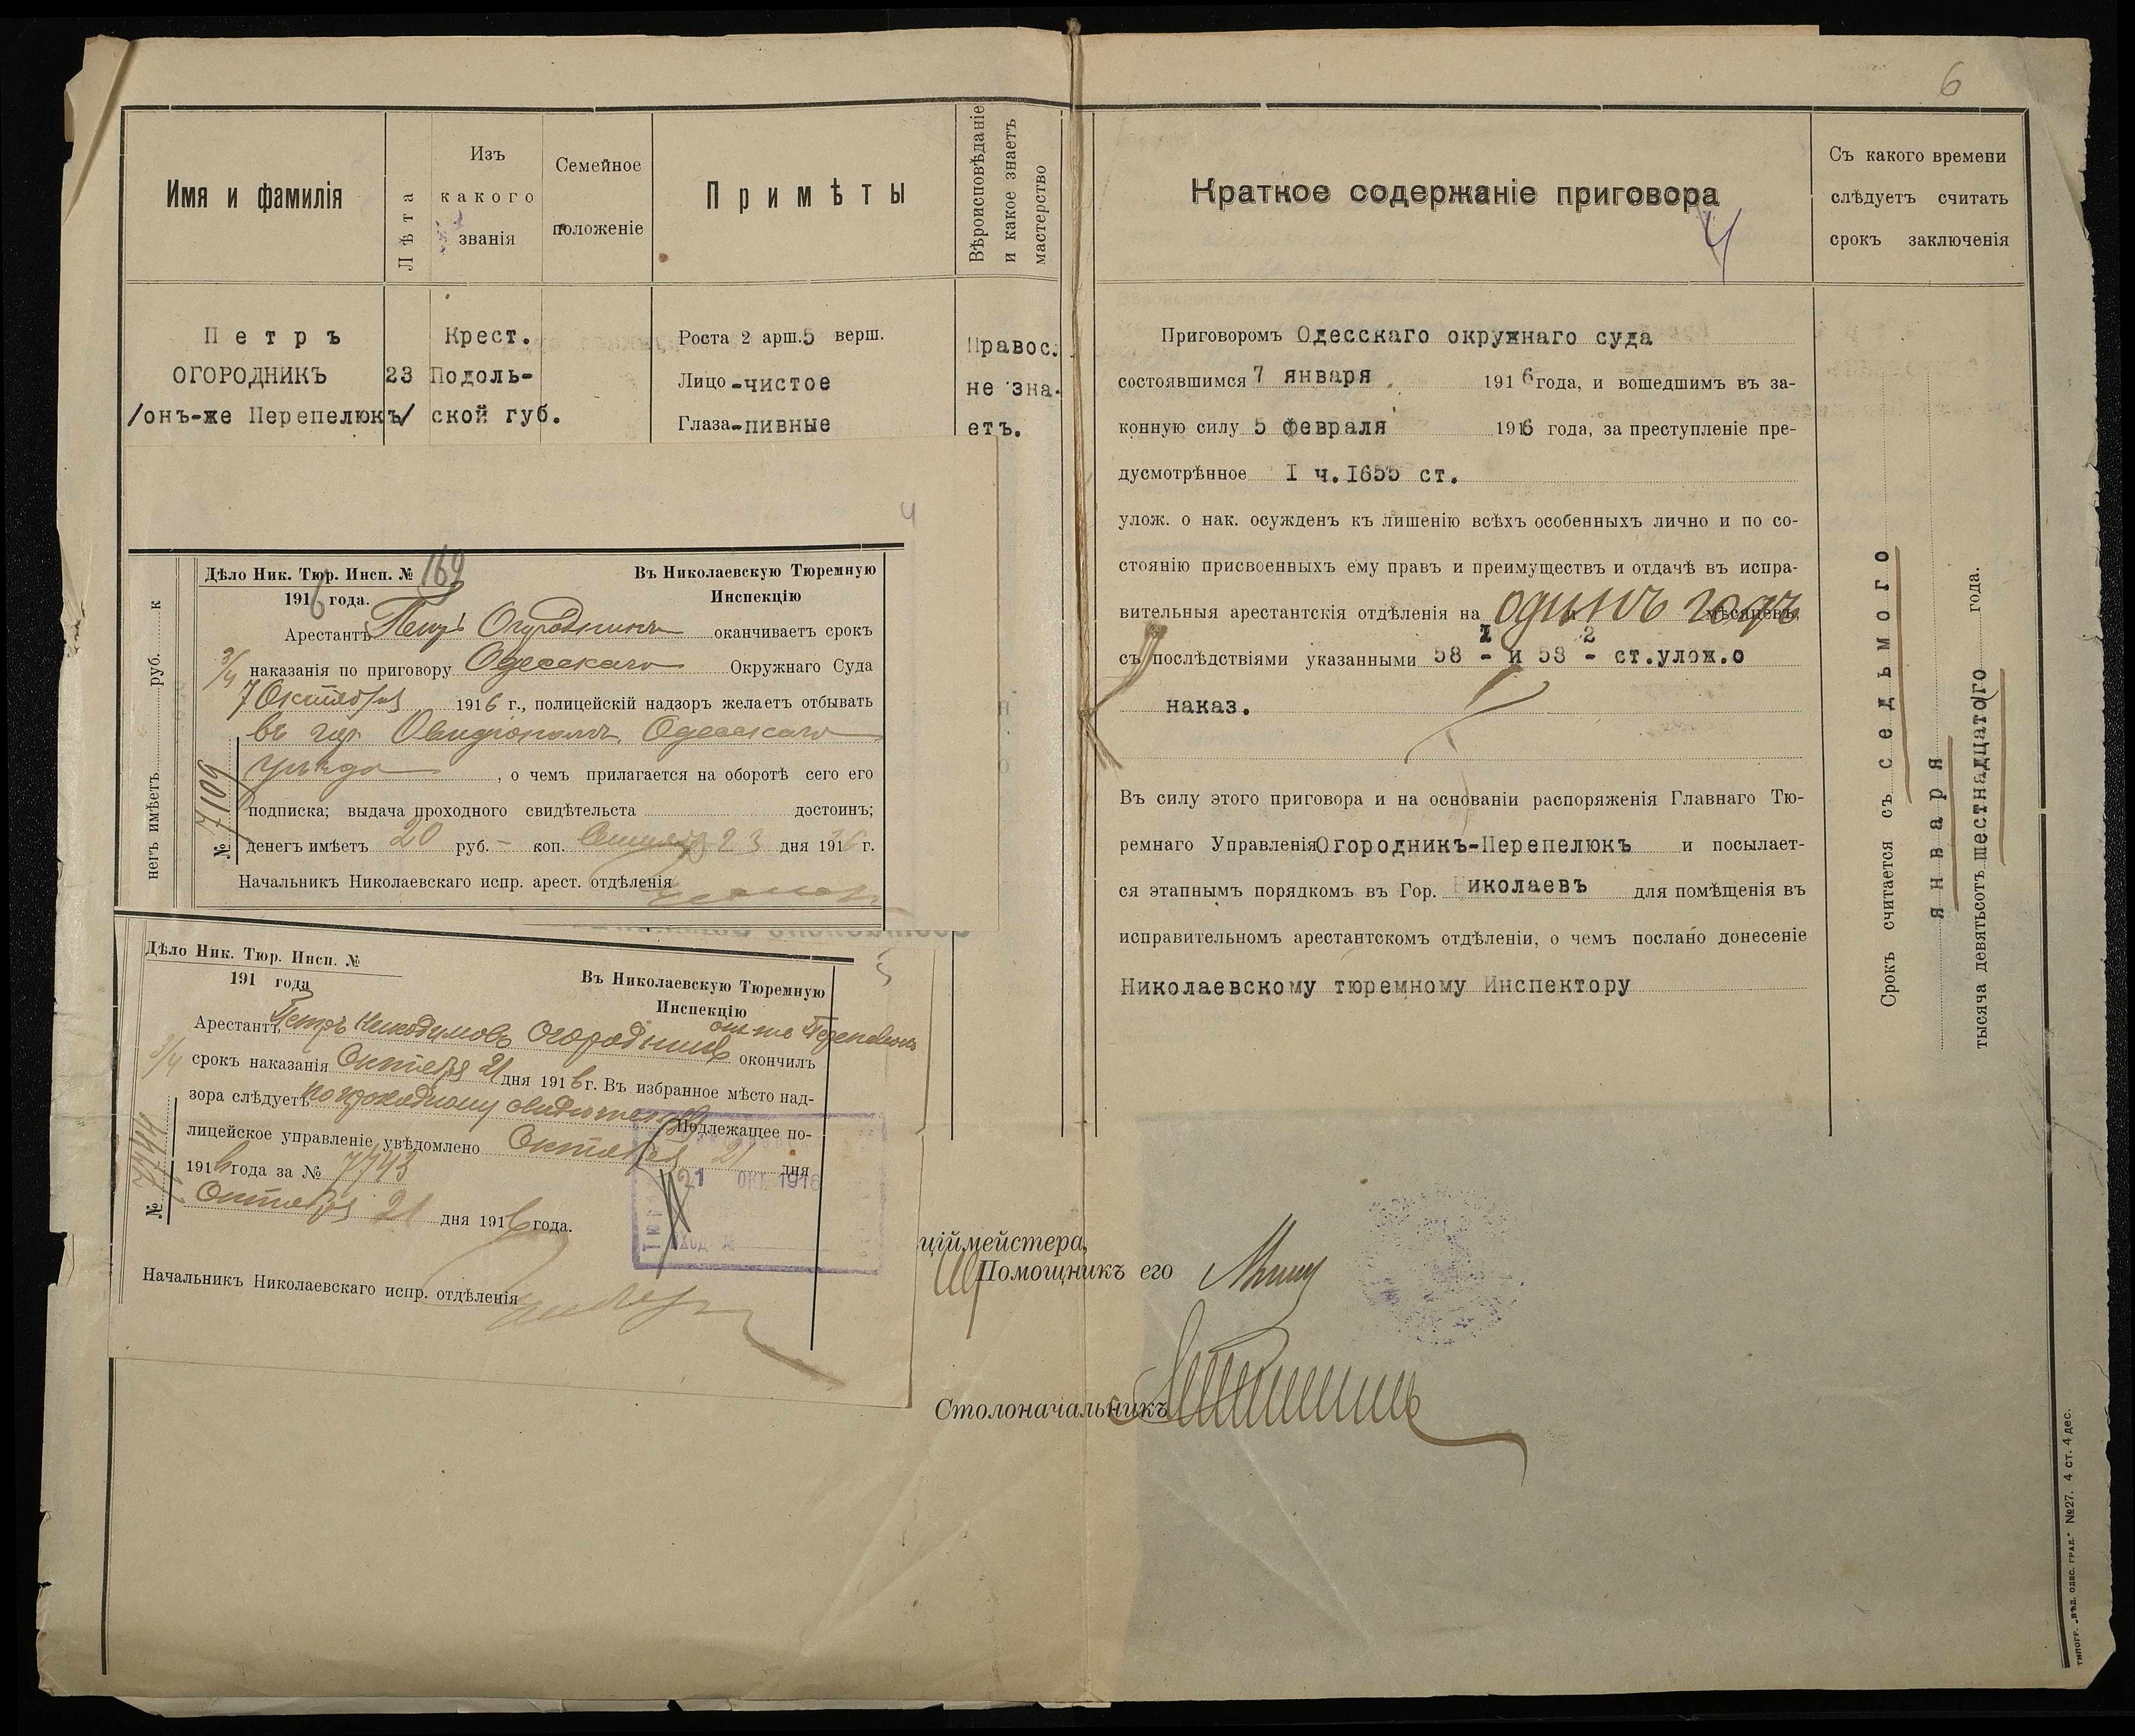 6
Имя и фамилія
Лѣта
Изъ
какого
званія
Семейное
положеніе
Примѣты
Вѣроисповѣданіе
и какое знаетъ
мастерство
Петръ
ОГОРОДНИКЪ
/онъ-же Перепелюкъ/
23
Крест.
Подоль-
ской губ.
Роста 2 арш. 5 верш.
Лицо-чистое
Глаза-пивные
Правос.
не зна-
етъ.
4
негъ имѣетъ руб. к
Дѣло Ник. Тюр. Инсп. № 169
1916 года.
Въ Николаевскую Тюремную
Инспекцію
Арестантъ Петръ Огородникъ оканчиваетъ срокъ
3/4 наказанія по приговору Одесскаго Окружнаго Суда
7 Октября 1916 г., полицейскій надзоръ желаетъ отбывать
въ гор. Овидіополѣ, Одесскаго
уѣзда, о чемъ прилагается на оборотѣ сего его
подписка; выдача проходного свидѣтельства достоинъ;
денегъ имѣетъ 20 руб. - коп. 23 дня 1916 г.
№ 7109
Начальникъ Николаевскаго испр. арест. отдѣленія
5
Дѣло Ник. Тюр. Инсп. №
191 года
Въ Николаевскую Тюремную
Инспекцію
он-же Перепелюкъ
Арестантъ Петръ Никодимовъ Огородникъ окончилъ
3/4 срокъ наказанія Октября 21 дня 1916 г. Въ избранное мѣсто над-
зора слѣдуетъ по проходному Подлежащее по-
лицейское управленіе увѣдомлено Октября 21 дня
1916 года за № 7743
Октября 21 дня 1916 года.
№ 7744
21 ОКТ 1916
Начальникъ Николаевскаго испр. отдѣленія
Краткое содержаніе приговора
4
Приговоромъ Одесскаго окружнаго суда
состоявшимся 7 января 1916 года, и вошедшимъ въ за-
конную силу 5 февраля 1916 года, за преступленіе пре-
дусмотрѣнное I ч. 1655 ст.
улож. о нак. осужденъ къ лишенію всѣхъ особенныхъ лично и по со-
стоянію присвоенныхъ ему правъ и преимуществъ и отдачѣ въ испра-
вительныя арестантскія отдѣленія на одинъ годъ мѣсяцевъ,
съ послѣдствіями указанными 58 1 - и 58 2 - ст.улож.о
наказ.
Въ силу этого приговора и на основаніи распоряженія Главнаго Тю-
ремнаго Управленія Огородникъ-Перепелюкъ и посылает-
ся этапнымъ порядкомъ въ Гор. Николаевъ для помѣщенія въ
исправительномъ арестантскомъ отдѣленіи, о чемъ послано донесеніе
Николаевскому тюремному Инспектору
Съ какого времени
слѣдуетъ считать
срокъ заключенія
Срокъ считается съ седьмого
января
тысяча девятьсотъ шестнадцатаго года.
ціймейстера,
Помощникъ его
Столоначальникъ
типогр. „вѣд. одес. град." №27. 4 ст. 4 дес.